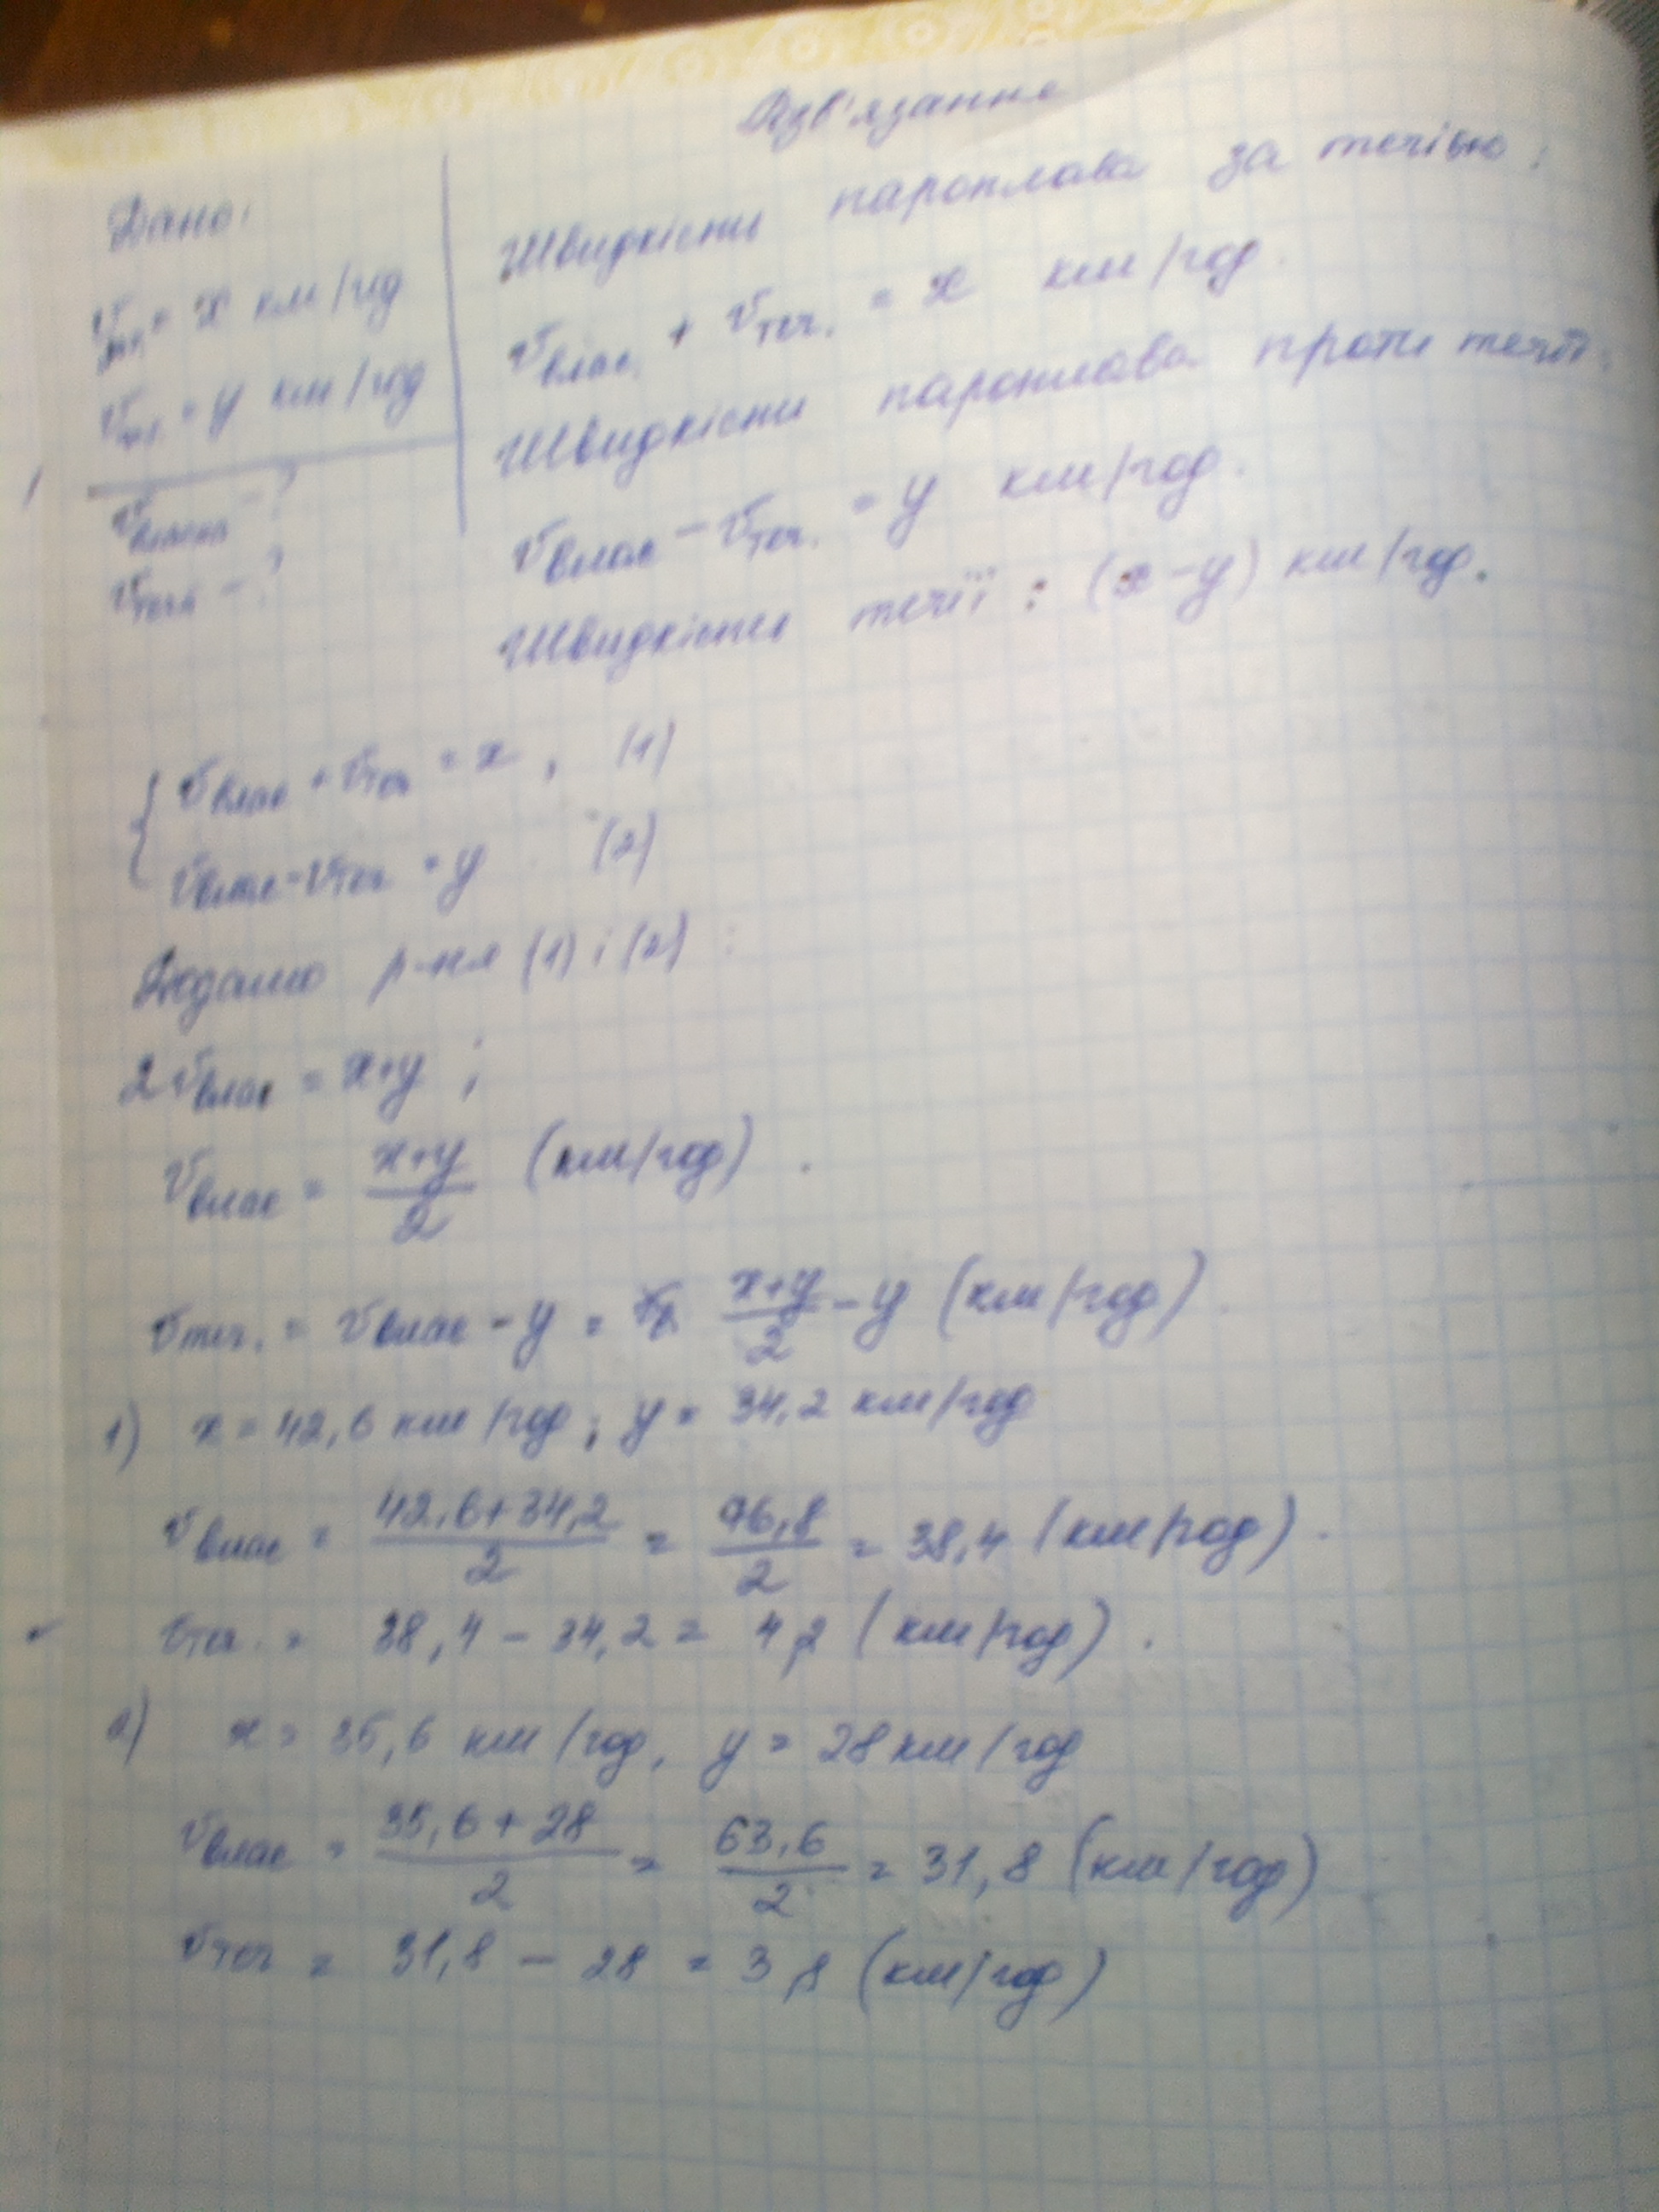 Розв'язання
Дано:
v за т. = x км/год
v пр.т. = y км/год
v власна - ?
v течії - ?
Швидкість пароплава за течією:
v влас. + v теч. = x км/год.
Швидкість пароплава проти течії:
v влас - v теч. = y км/год.
Швидкість течії : (x-y) км/год.
{ v влас + v теч = x , (1)
v влас - v теч = y (2)
Додамо р-ня (1) і (2) :
2 v влас = x+y ;
v влас = (x+y)/2 (км/год) .
v теч. = v влас - y = (x+y)/2 - y (км/год) .
1) x = 42,6 км/год ; y = 34,2 км/год
v влас = (42,6+34,2)/2 = 96,8/2 = 38,4 (км/год) .
v теч. = 38,4 - 34,2 = 4,2 (км/год) .
2) x = 35,6 км/год, y = 28 км/год
v влас = (35,6 + 28)/2 = 63,6/2 = 31,8 (км/год)
v теч = 31,8 - 28 = 3,8 (км/год)